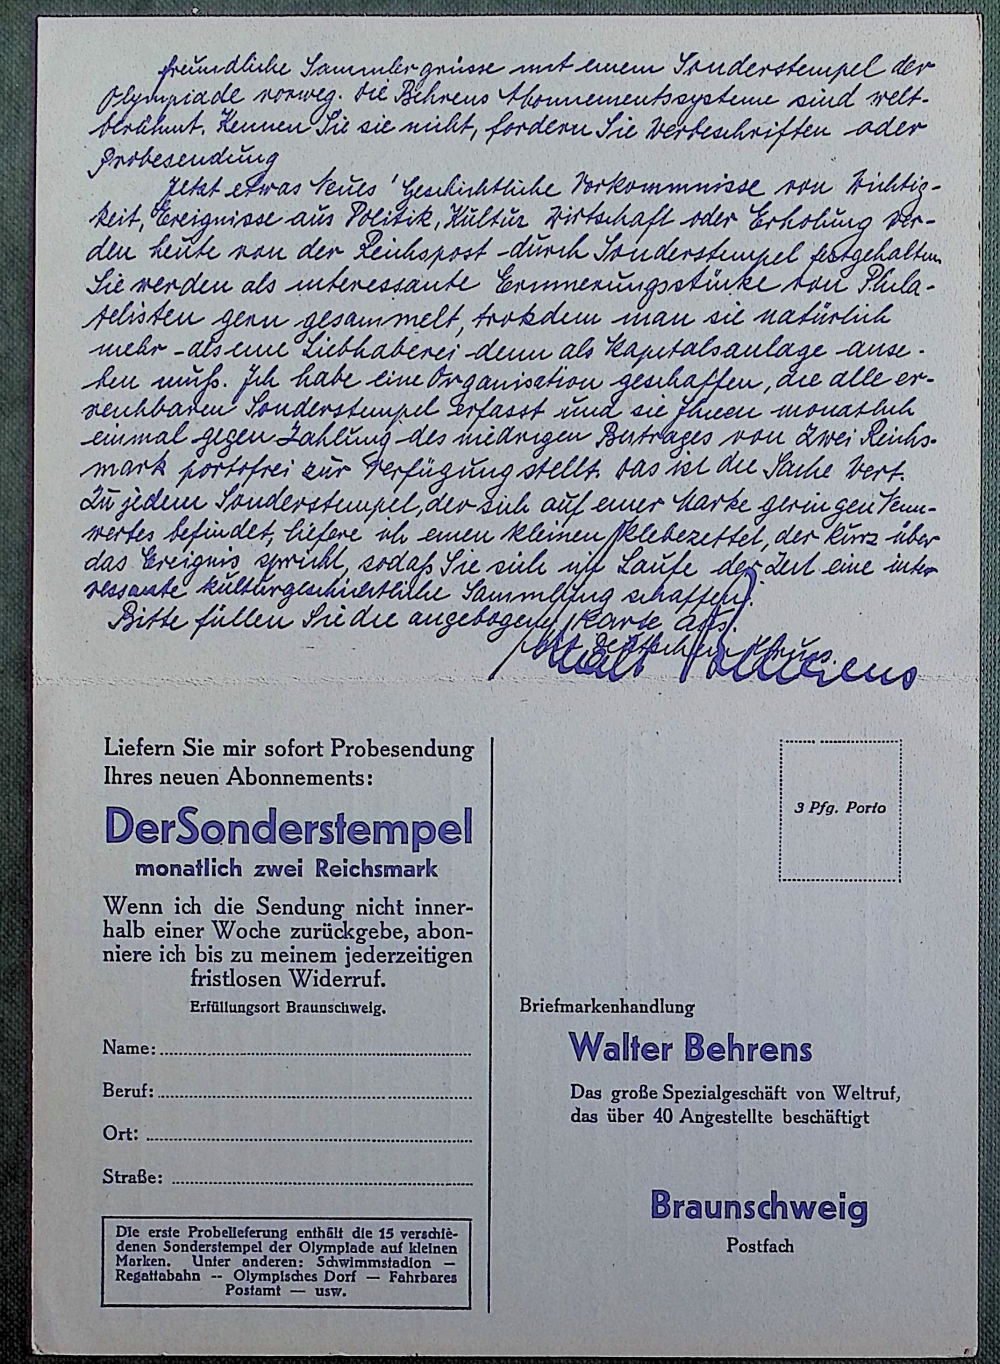 freundliche Sammlergrüsse mit einem Sonderstempel der
Olympiade vorweg. Die Behrens Abonnementssysteme sind welt-
berühmt. Kennen Sie sie nicht, fordern Sie Werbeschriften oder
Probesendung
Jetzt etwas Neues! Geschichtliche Vorkommnisse von Wichtig-
keit, Ereignisse aus Politik, Kultur, Wirtschaft oder Erholung wer-
den heute von der Reichspost durch Sonderstempel festgehalten.
Sie werden als interessante Erinnerungsstücke von Phila-
telisten gern gesammelt, trotzdem man sie natürlich
mehr als eine Liebhaberei denn als Kapitalsanlage anse-
hen muß. Ich habe eine Organisation geschaffen, die alle er-
reichbaren Sonderstempel erfasst und sie Ihnen monatlich
einmal gegen Zahlung des niedrigen Betrages von Zwei Reichs-
mark portofrei zur Verfügung stellt. Das ist die Sache wert.
Zu jedem Sonderstempel, der sich auf einer Marke geringen Nenn-
wertes befindet, liefere ich einen kleinen Klebezettel, der kurz über
das Ereignis spricht, sodaß Sie sich im Laufe der Zeit eine inte-
ressante kulturgeschichtliche Sammlung schaffen.
Bitte füllen Sie die angebogene Karte aus.
Mit Deutschem Gruss
Walter Behrens
Liefern Sie mir sofort Probesendung
Ihres neuen Abonnements:
Der Sonderstempel
monatlich zwei Reichsmark
Wenn ich die Sendung nicht inner-
halb einer Woche zurückgebe, abon-
niere ich bis zu meinem jederzeitigen
fristlosen Widerruf.
Erfüllungsort Braunschweig.
Name:
Beruf:
Ort:
Straße:
Die erste Probelieferung enthält die 15 verschie-
denen Sonderstempel der Olympiade auf kleinen
Marken. Unter anderen: Schwimmstadion —
Regattabahn -- Olympisches Dorf — Fahrbares
Postamt — usw.
3 Pfg. Porto
Briefmarkenhandlung
Walter Behrens
Das große Spezialgeschäft von Weltruf,
das über 40 Angestellte beschäftigt
Braunschweig
Postfach